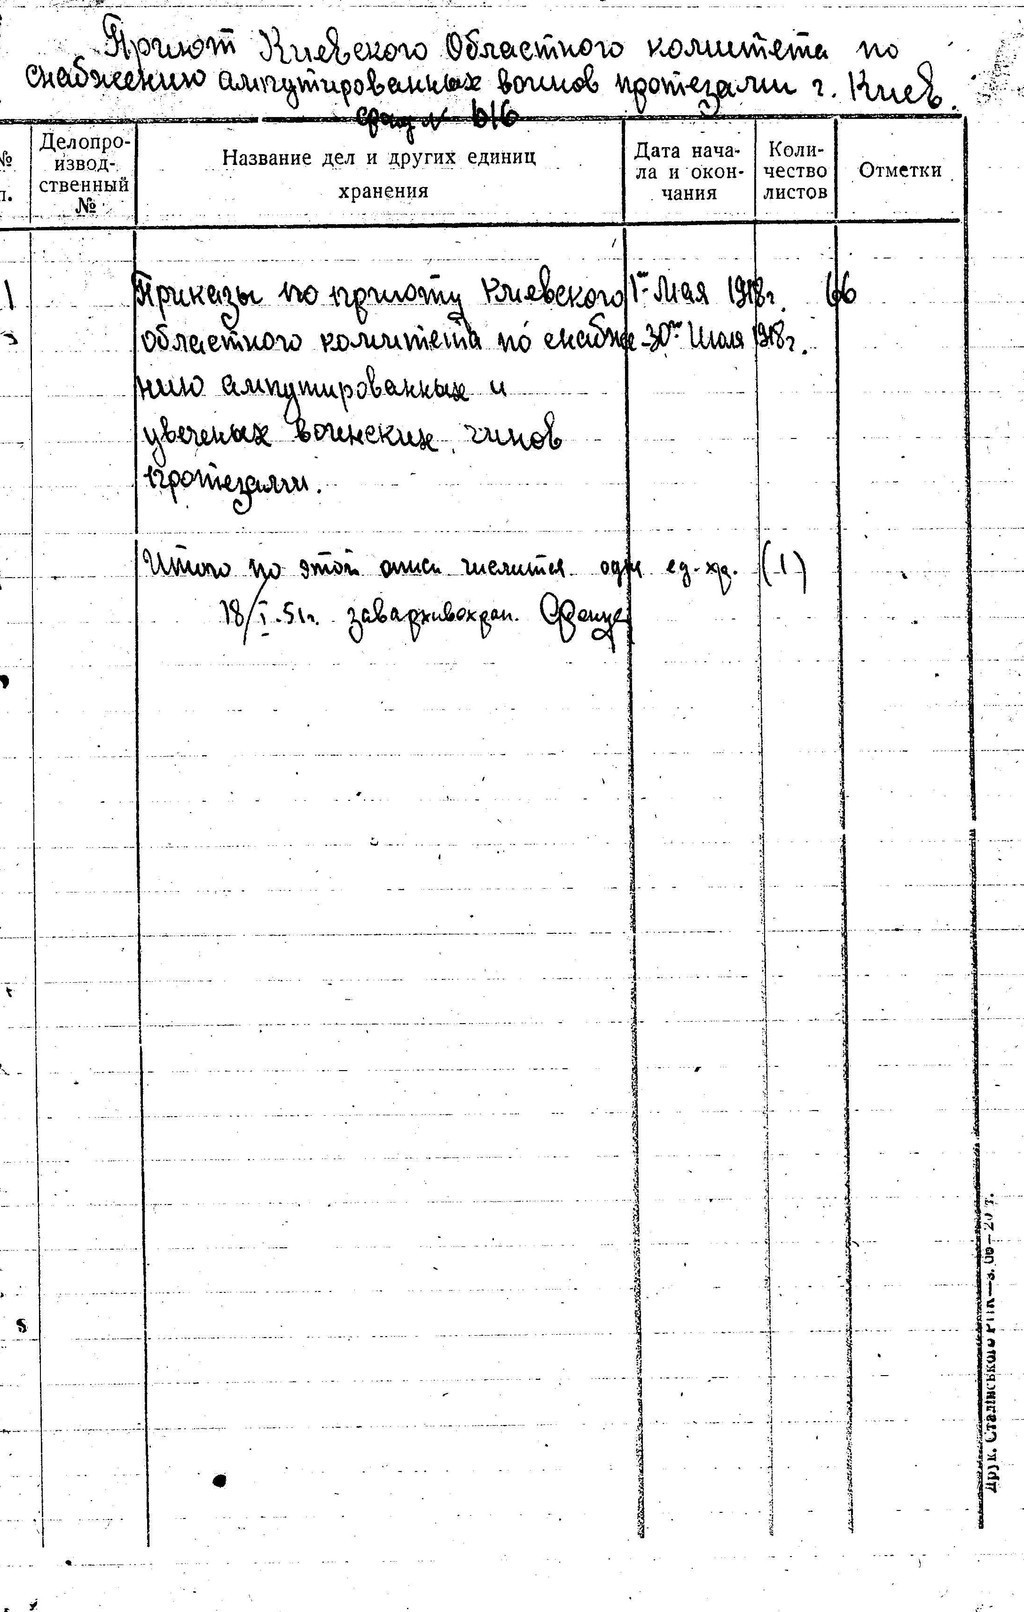 Приют Киевского Областного комитета по
снабжению ампутированных воинов протезами г. Киев.
фонд № 616
№
п.
Делопро-
извод-
ственный
№
Название дел и других единиц
хранения
Дата нача-
ла и окон-
чания
Коли-
чество
листов
Отметки
1 Приказы по приюту Киевского 1го Мая 1918г. 66
областного комитета по снабже- 30го Июля 1918г.
нию ампутированных и
увечных воинских чинов
протезами.
Итого по этой описи числится одна ед. хр. (1)
18/I-51г. завархивохран.
Друк. Сталінського